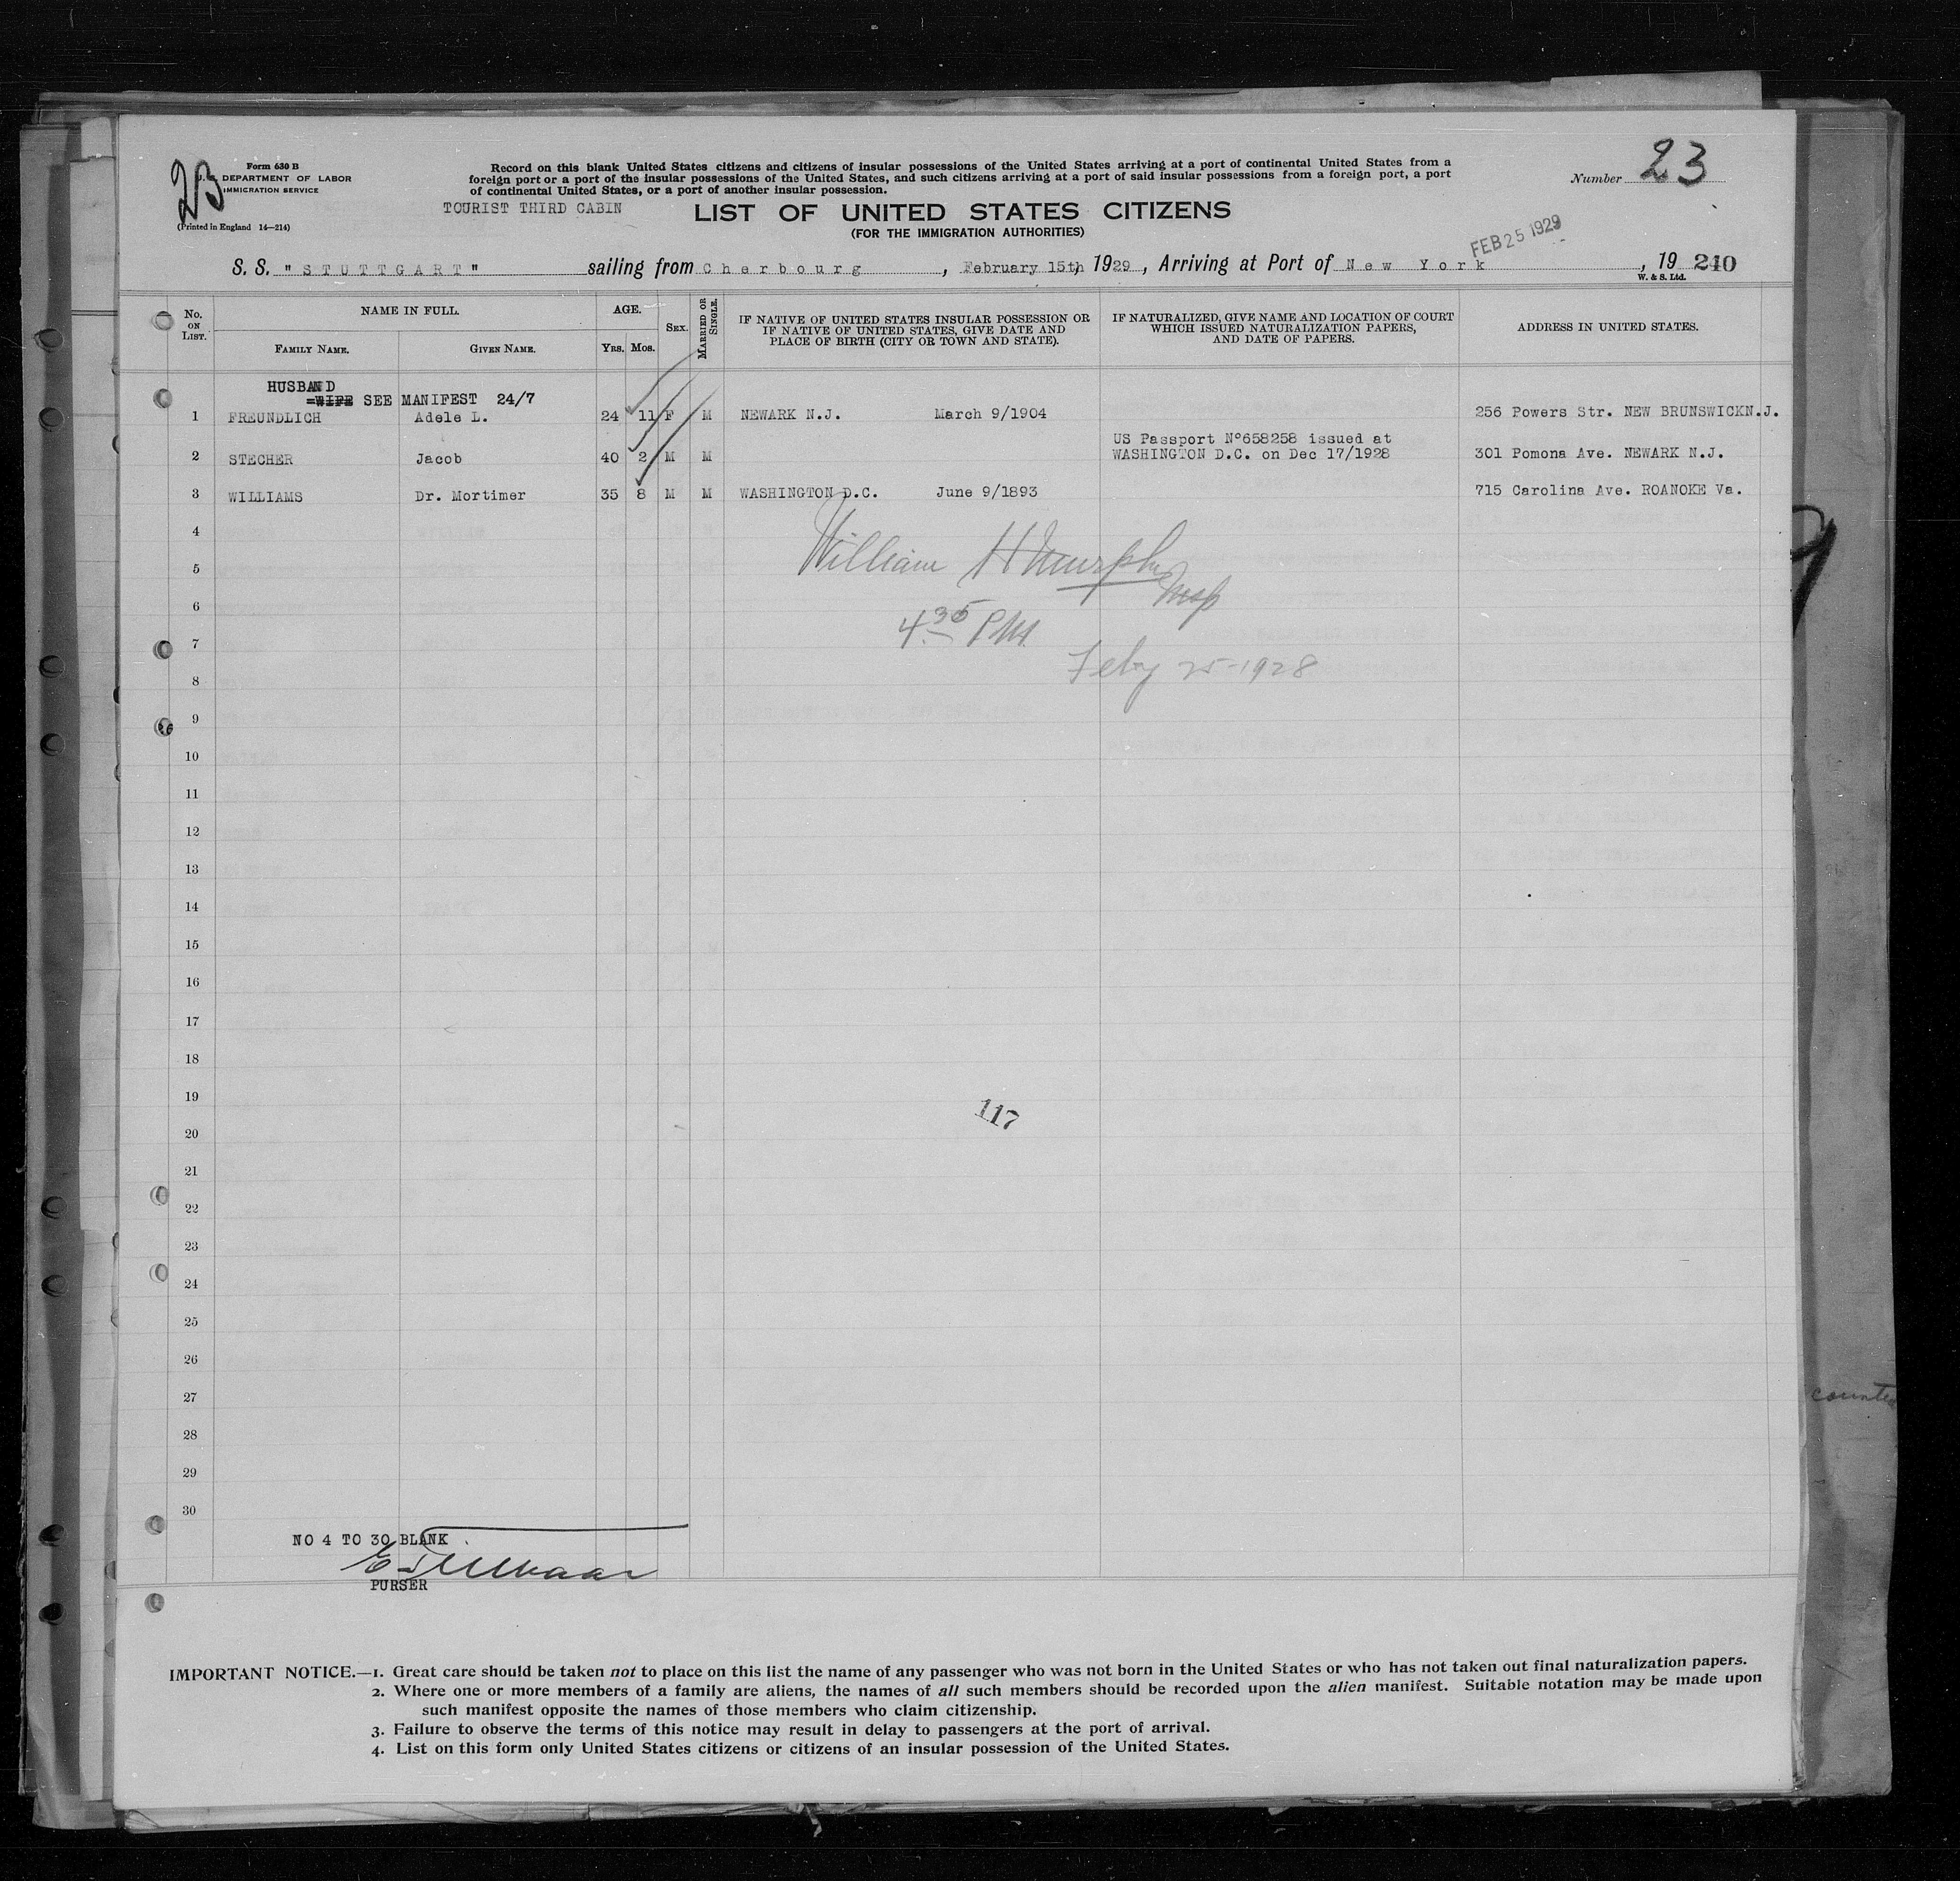 23
Form 630 B
U.S. DEPARTMENT OF LABOR
IMMIGRATION SERVICE
(Printed in England 14—214)
Record on this blank United States citizens and citizens of insular possessions of the United States arriving at a port of continental United States from a
foreign port or a port of the insular possessions of the United States, and such citizens arriving at a port of said insular possessions from a foreign port, a port
of continental United States, or a port of another insular possession.
Number 23
TOURIST THIRD CABIN
LIST OF UNITED STATES CITIZENS
(FOR THE IMMIGRATION AUTHORITIES)
FEB 25 1929
S. S. "STUTTGART" sailing from Cherbourg, February 15th, 1929, Arriving at Port of New York, 19 240
W. & S. Ltd.
No. ON LIST.
NAME IN FULL.
FAMILY NAME. GIVEN NAME.
AGE.
YRS. MOS.
SEX.
MARRIED OR SINGLE.
IF NATIVE OF UNITED STATES INSULAR POSSESSION OR
IF NATIVE OF UNITED STATES, GIVE DATE AND
PLACE OF BIRTH (CITY OR TOWN AND STATE).
IF NATURALIZED, GIVE NAME AND LOCATION OF COURT
WHICH ISSUED NATURALIZATION PAPERS,
AND DATE OF PAPERS.
ADDRESS IN UNITED STATES.
HUSBAND
=WIFE SEE MANIFEST 24/7
1 FREUNDLICH Adele L. 24 11 F M NEWARK N.J. March 9/1904 256 Powers Str. NEW BRUNSWICKN.J.
US Passport Nº658258 issued at
2 STECHER Jacob 40 2 M M WASHINGTON D.C. on Dec 17/1928 301 Pomona Ave. NEWARK N.J.
3 WILLIAMS Dr. Mortimer 35 8 M M WASHINGTON D.C. June 9/1893 715 Carolina Ave. ROANOKE Va.
4
William H Murphy
5
Insp
6
4 35 PM.
7
Feby 25-1928
8
9
10
11
12
13
14
15
16
17
18
19
117
20
21
22
23
24
25
26
27
counted
28
29
30
NO 4 TO 30 BLANK
PURSER
IMPORTANT NOTICE.—1. Great care should be taken not to place on this list the name of any passenger who was not born in the United States or who has not taken out final naturalization papers.
2. Where one or more members of a family are aliens, the names of all such members should be recorded upon the alien manifest. Suitable notation may be made upon
such manifest opposite the names of those members who claim citizenship.
3. Failure to observe the terms of this notice may result in delay to passengers at the port of arrival.
4. List on this form only United States citizens or citizens of an insular possession of the United States.